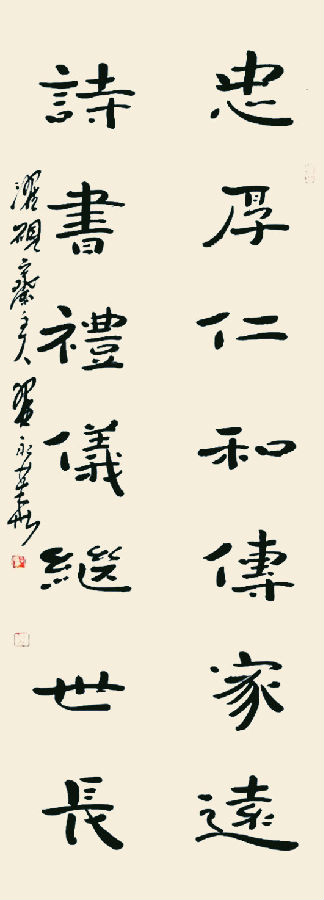 忠厚仁和傳家遠
詩書禮儀繼世長
濯硯齋主人